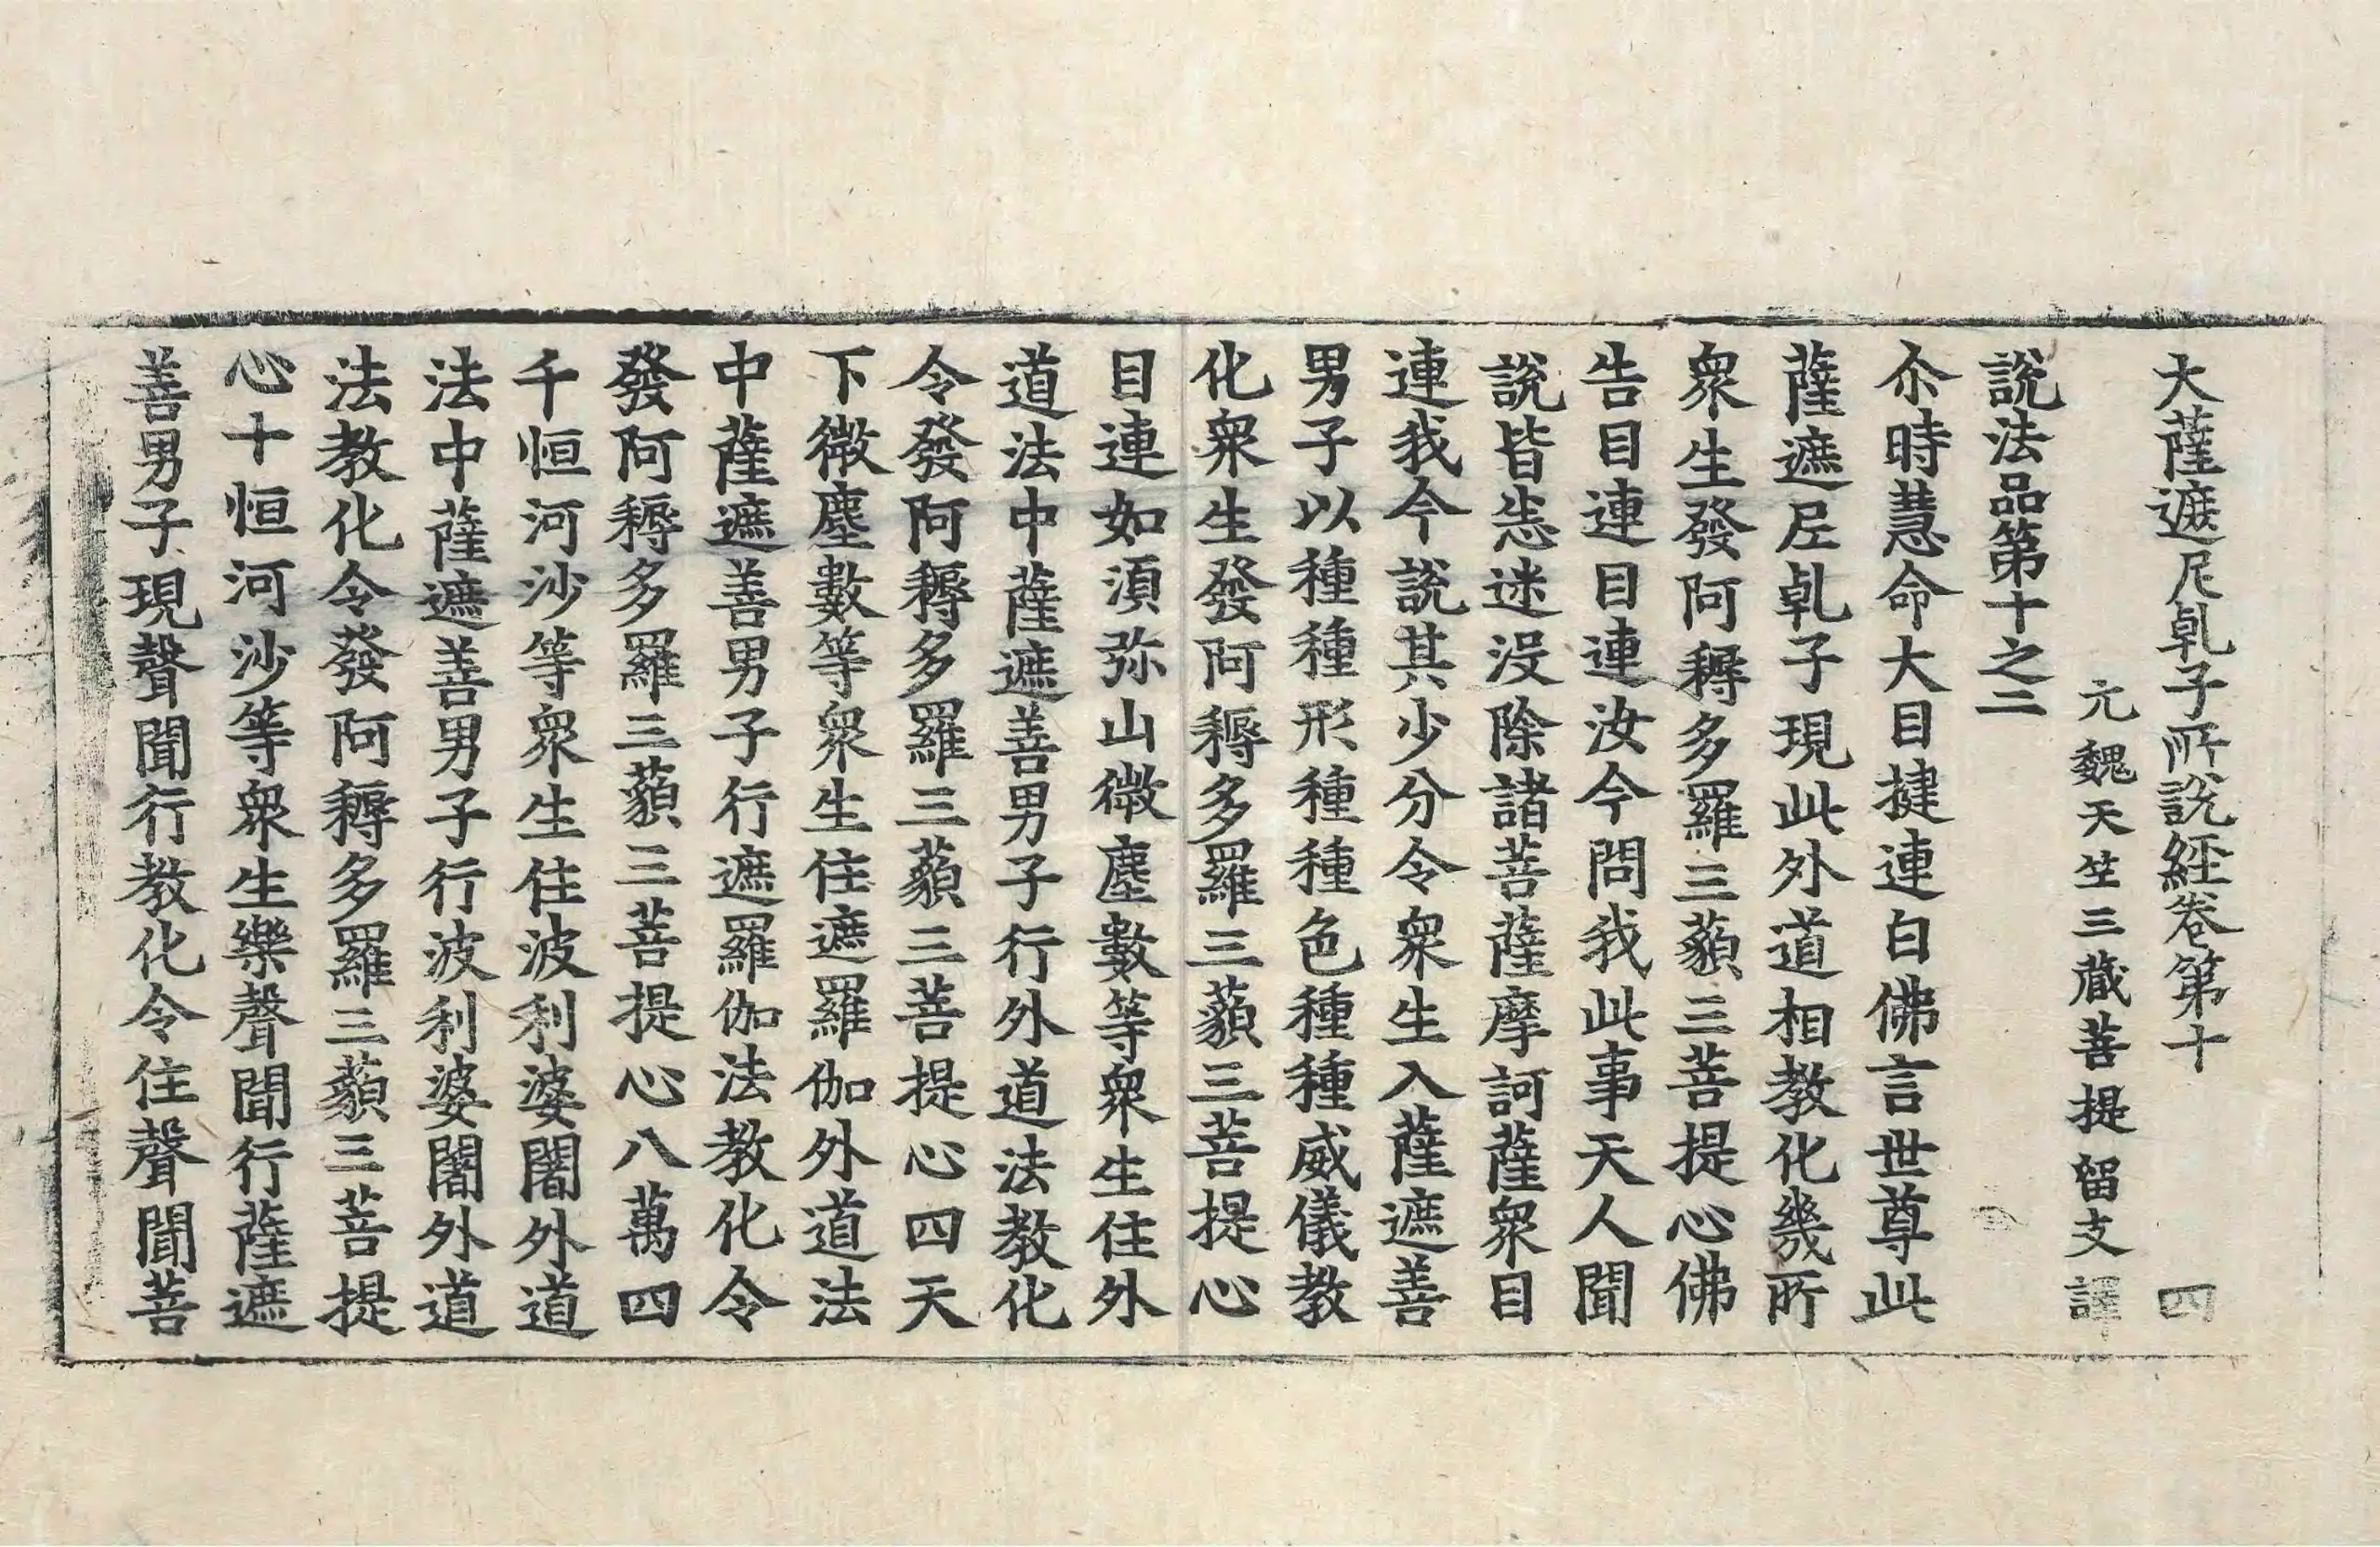 大薩遮尼乹子所說經卷第十 四
元魏天竺三藏菩提留支譯
說法品第十之二
尒時慧命大目揵連白佛言世尊此
薩遮𡰱乹子現此外道相教化幾所
衆生發阿耨多羅三藐三菩提心佛
告目連目連汝今問我此事天人聞
說皆悉迷没除諸菩薩摩訶薩衆目
連我今說其少分令衆生入薩遮善
男子以種種形種種色種種威儀教
化衆生發阿耨多羅三藐三菩提心
目連如湏弥山微塵數等衆生住外
道法中薩遮善男子行外道法教化
令發阿耨多羅三藐三菩提心四天
下微塵數等衆生住遮羅伽外道法
中薩遮善男子行遮羅伽法教化令
發阿耨多羅三藐三菩提心八萬四
千恒河沙等衆生住波利婆闍外道
法中薩遮善男子行波利婆闍外道
法教化令發阿耨多羅三藐三菩提
心十恒河沙等衆生樂聲聞行薩遮
善男子現聲聞行教化令住聲聞菩